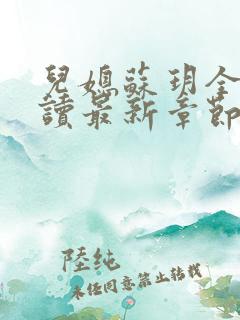 兒媳蘇玥全
讀最新章節
陸純
未經同意禁止轉載